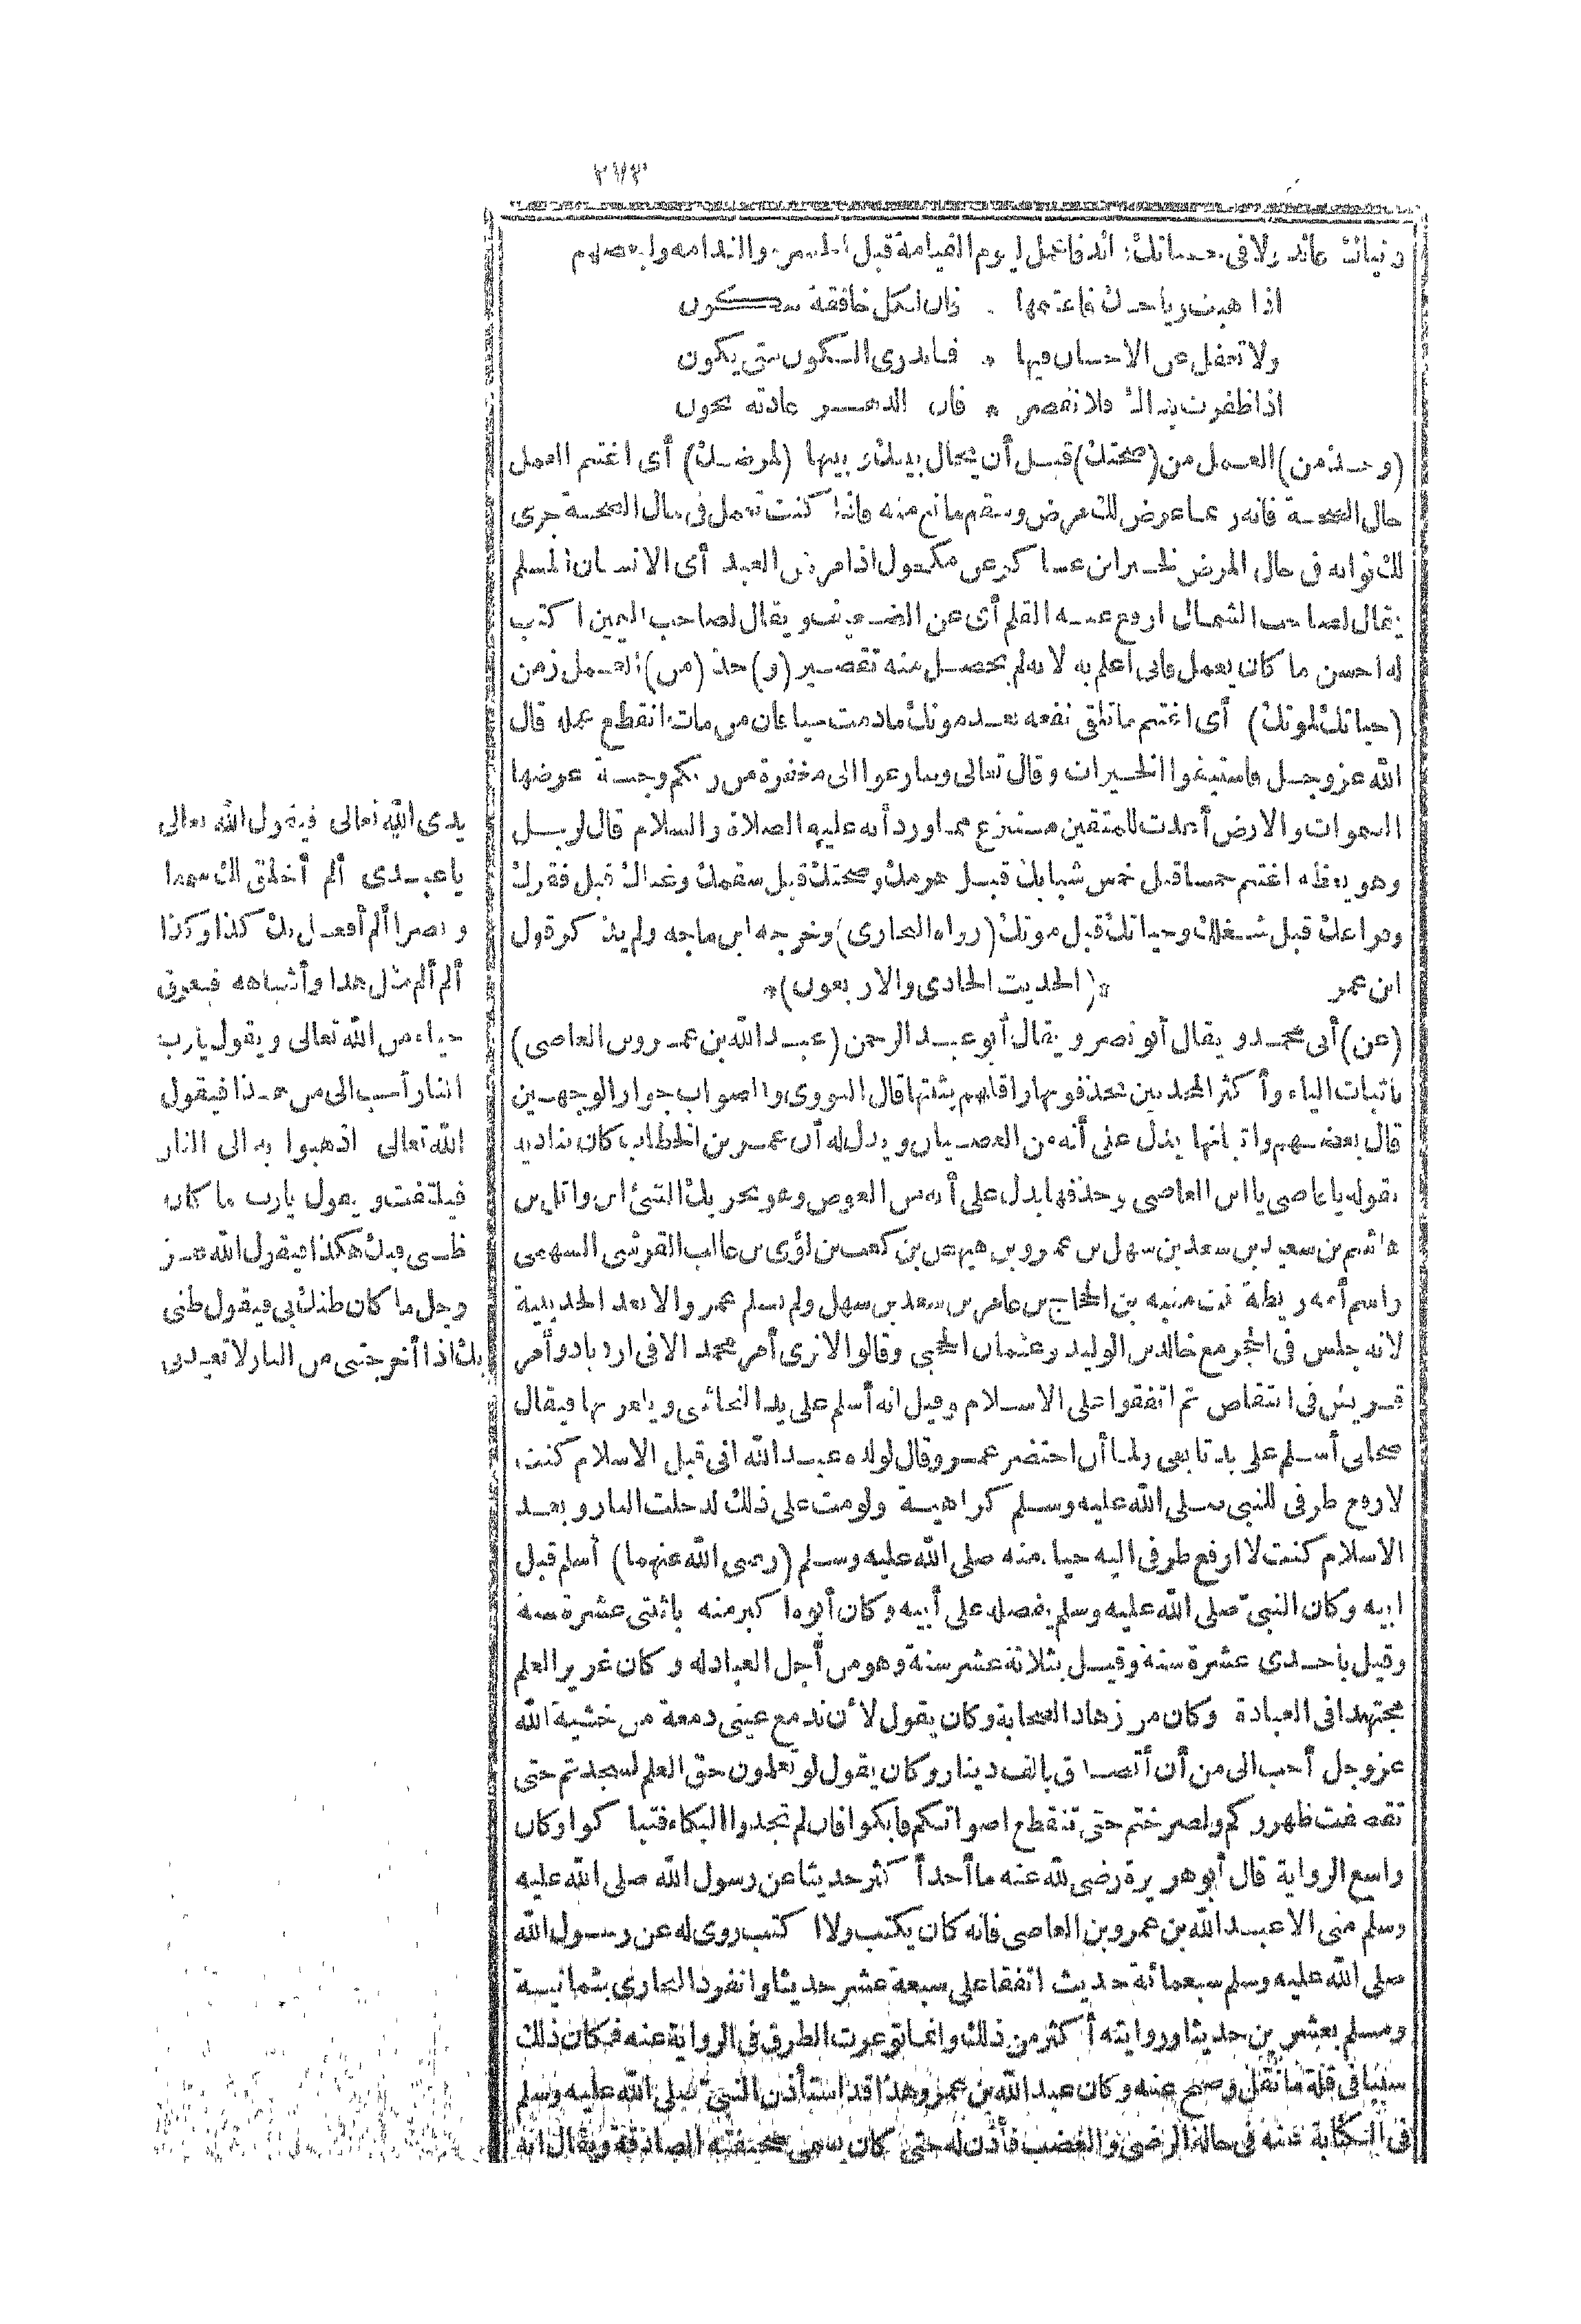 ٢٧٣
دنياك عائد ولا فى حسناتك زائد فاعمل ليوم القيامة قبل الحسرة والندامه ولبعضهم
اذا هبت رياحك فاغتنمها * فان لكل خافقة سكون
ولا تغفل عن الاحسان فيها * فما تدرى السكون متى يكون
اذا ظفرت يداك فلا تقصر * فان الدهر عادته يخون
(وخذ من) العمل من (صحتك) قبل أن يحال بينك وبينها (لمرضك) أى اغتنم العمل
حال الصحة فانه ربما عرض لك مرض وسقم مانع منه واذا كنت تعمل فى حال الصحة جرى
لك ثوابه فى حال المرض لخبر ابن عساكر عن مكحول اذا مرض العبد أى الانسان المسلم
يقال لصاحب الشمال ارفع عنه القلم أى عن الضعيف ويقال لصاحب اليمين اكتب
له احسن ما كان يعمل فانى أعلم به لانه لم يحصل منه تقصير (و) خذ (من) العمل زمن
(حياتك لموتك) أى اغتنم ما تلقى نفعه بعد موتك مادمت حيا فان من مات انقطع عمله قال
الله عز وجل فاستبقوا الخيرات وقال تعالى وسارعوا الى مغفرة من ربكم وجنة عرضها
السموات والارض أعدت للمتقين منتزع مما ورد أنه عليه الصلاة والسلام قال لرجل
وهو يعظه اغتنم خمسا قبل خمس شبابك قبل هرمك وصحتك قبل سقمك وغناك قبل فقرك
وفراغك قبل شغلك وحياتك قبل موتك (رواه البخارى) وخرجه ابن ماجه ولم يذكر قول
ابن عمر *(الحديث الحادى والاربعون)*
(عن) أبى محمد ويقال أبو نصر ويقال أبو عبد الرحمن (عبد الله بن عمرو بن العاصى)
باثبات الياء وأكثر المحدثين يحذفونها واقلهم يثبتها قال النووى والصواب جواز الوجهين
قال بعضهم واثباتها يدل على أنه من العصيان ويدل له أن عمر بن الخطاب كان يناديه
بقوله يا عاصى يا ابن العاصى وحذفها يدل على أنه من العوص وهو تحريك الشئ ابن وائل بن
هاشم بن سعيد بن سعد بن سهل بن عمرو بن هصيص بن كعب بن لؤى بن غالب القرشى السهمى
واسم أمه ريطة بنت منبه بن الحجاج بن عامر بن سعد بن سهل ولم يسلم عمرو الا بعد الحديبية
لانه جلس فى الحجر مع خالد بن الوليد وعثمان الحجبى وقالوا لا نرى أمر محمد الا فى ازدياد وأمر
قريش فى انتقاص ثم اتفقوا على الاسلام وقيل انه أسلم على يد النجاشى ويلغز بها فيقال
صحابى أسلم على يد تابعى ولما أن احتضر عمرو قال لولده عبد الله انى قبل الاسلام كنت
لا ارفع طرفى للنبى صلى الله عليه وسلم كراهية ولومت على ذلك لدخلت النار وبعد
الاسلام كنت لا ارفع طرفى اليه حياء منه صلى الله عليه وسلم (رضى الله عنهما) أسلم قبل
ابيه وكان النبى صلى الله عليه وسلم يفضله على أبيه وكان أبوه اكبر منه باثنتى عشرة سنة
وقيل باحدى عشرة سنة وقيل بثلاثة عشر سنة وهو من أجل العبادله وكان غزير العلم
مجتهدا فى العبادة وكان من زهاد الصحابة وكان يقول لأن تدمع عينى دمعة من خشية الله
عز وجل أحب الى من أن أتصدق بالف دينار وكان يقول لو تعلمون حق العلم لسجدتم حتى
تقصفت ظهوركم ولصرختم حتى تنقطع اصواتكم فابكوا فان لم تجدوا البكاء فتباكوا وكان
واسع الرواية قال أبو هريرة رضى لله عنه ما أحد أكثر حديثا عن رسول الله صلى الله عليه
وسلم منى الا عبد الله بن عمرو بن العاصى فانه كان يكتب ولا اكتب روى له عن رسول الله
صلى الله عليه وسلم سبعمائة حديث اتفقا على سبعة عشر حديثا وانفرد البخارى بثمانية
ومسلم بعشرين حديثا وروايته أكثر من ذلك وانما توعرت الطرق فى الرواية عنه فكان ذلك
سببا فى قلة ما نقل وصح عنه وكان عبد الله بن عمرو هذا قد استأذن النبى صلى الله عليه وسلم
فى الكتابة عنه فى حالة الرضى والغضب فأذن له حتى كان يسمى صحيفته الصادقة ويقال انه
يدى الله تعالى فيقول الله تعالى
يا عبدى ألم أخلق لك سمعا
وبصرا ألم أفعل بك كذا وكذا
ألم ألم مثل هذا وأشباهه فيعرق
حياء من الله تعالى ويقول يارب
النار أحب الى من هذا فيقول
الله تعالى اذهبوا به الى النار
فيلتفت ويقول يارب ما كان
ظنى فيك هكذا فيقول الله عز
وجل ما كان ظنك بى فيقول ظنى
بك اذا أخرجتنى من النار لا تعيدنى